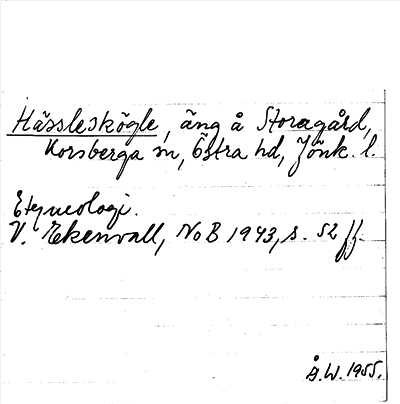 Hässleskögle, äng å Storagård,
Korsberga sn, Östra hd, Jönk. l.
Etymologi.
V. Ekenvall, NoB 1943, s. 52 ff.
Å.W. 1955.